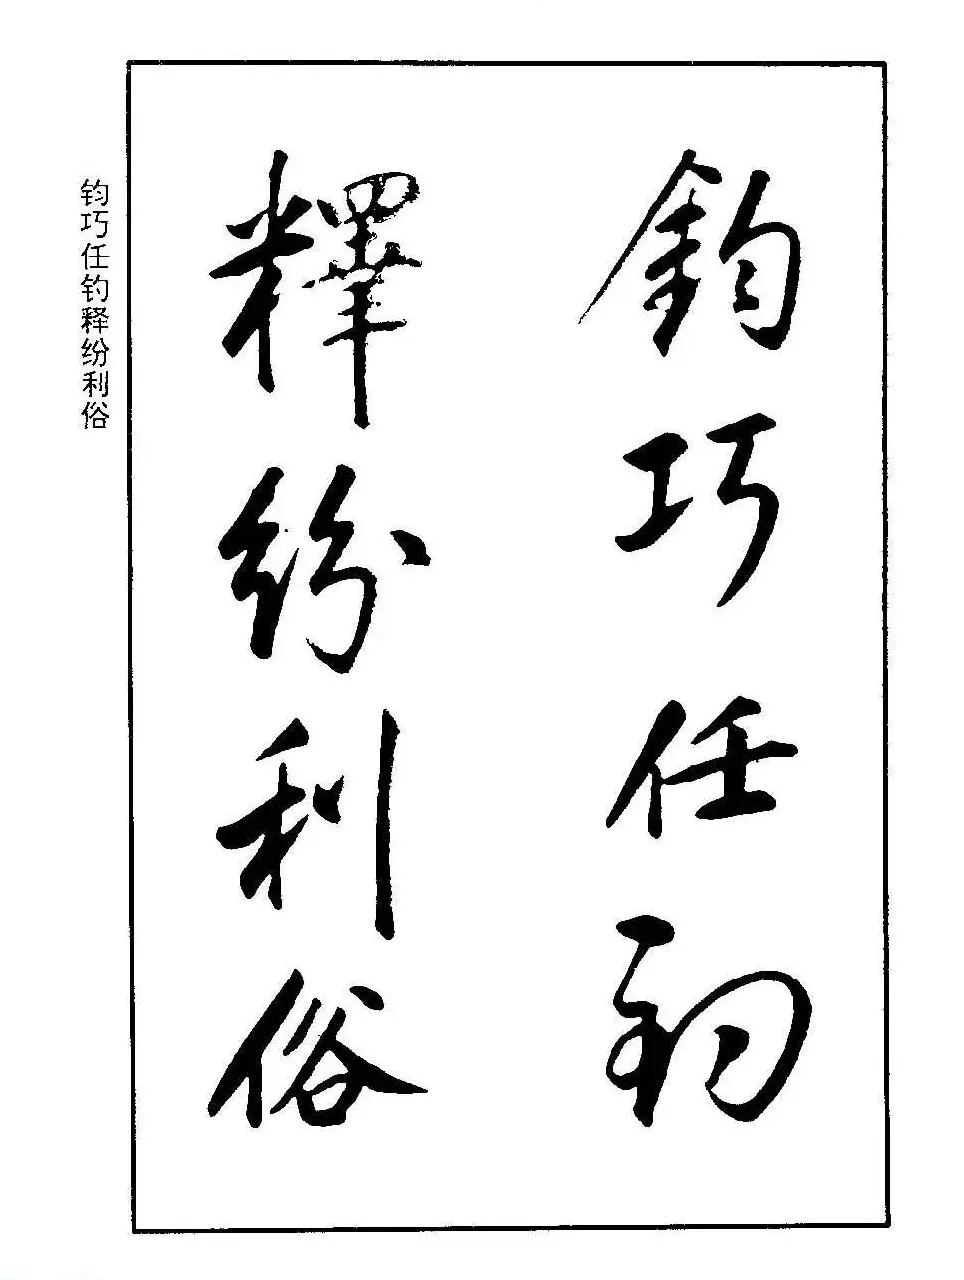 鈞巧任釣
釋紛利俗
钧巧任钓释纷利俗